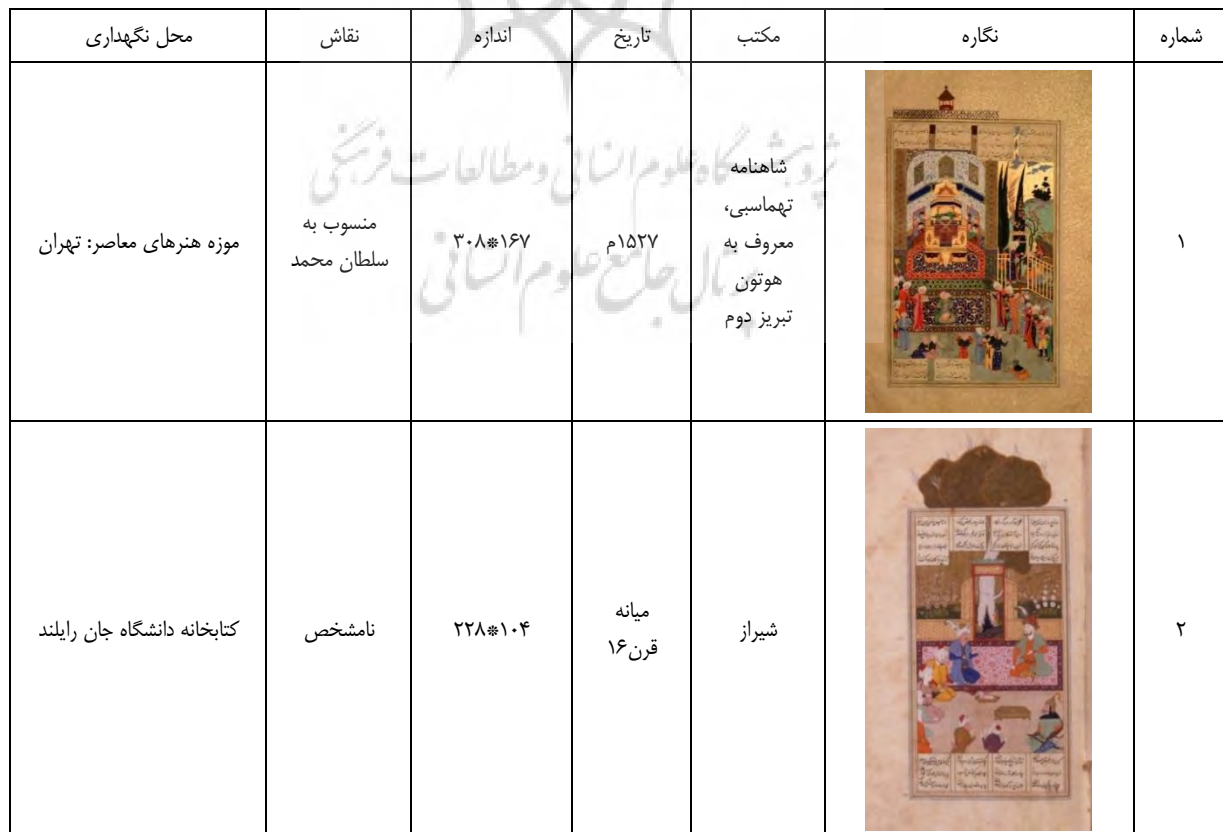 شماره
نگاره
مکتب
تاریخ
اندازه
نقاش
محل نگهداری
۱
شاهنامه
تهماسبی،
معروف به
هوتون
تبریز دوم
۱۵۲۷م
۳۰۸*۱۶۷
منسوب به
سلطان محمد
موزه هنرهای معاصر: تهران
۲
شیراز
میانه
قرن۱۶
۲۲۸*۱۰۴
نامشخص
کتابخانه دانشگاه جان رایلند
پژوهشگاه علوم انسانی و مطالعات فرهنگی
پرتال جامع علوم انسانی